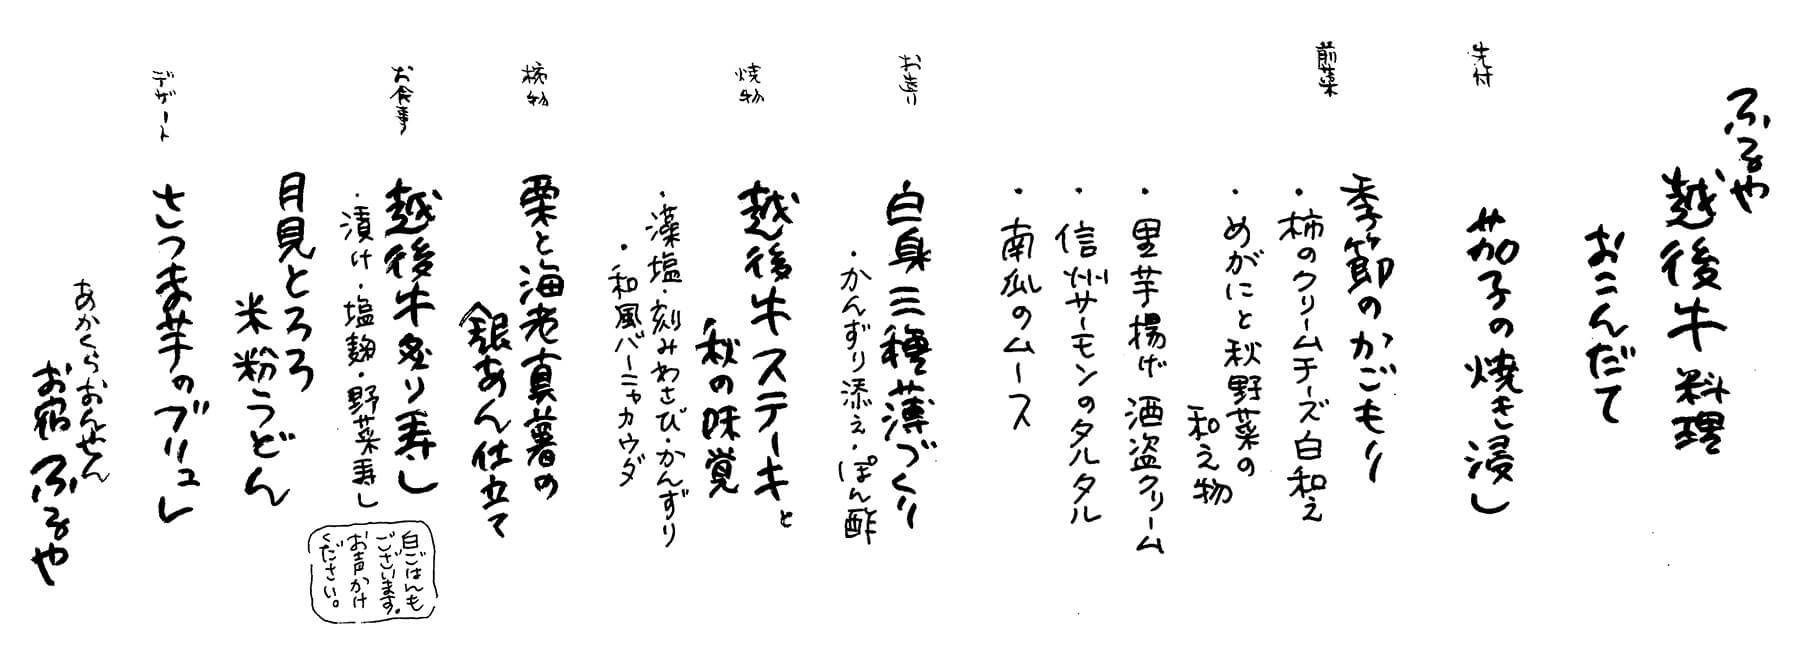 ふるや
越後牛料理
おこんだて
先付
茄子の焼き浸し
前菜
季節のかごもり
・柿のクリームチーズ白和え
・めがにと秋野菜の
和え物
・里芋揚げ 酒盗クリーム
・信州サーモンのタルタル
・南瓜のムース
お造り
白身三種薄づくり
・かんずり添え・ぽん酢
焼物
越後牛ステーキと
秋の味覚
・藻塩・刻みわさび・かんずり
・和風バーニャカウダ
椀物
栗と海老真薯の
銀あん仕立て
お食事
越後牛炙り寿し
・漬け・塩麹・野菜寿し
白ごはんも
ございます。
お声かけ
ください。
月見とろろ
米粉うどん
デザート
さつま芋のブリュレ
あかくらおんせん
お宿ふるや